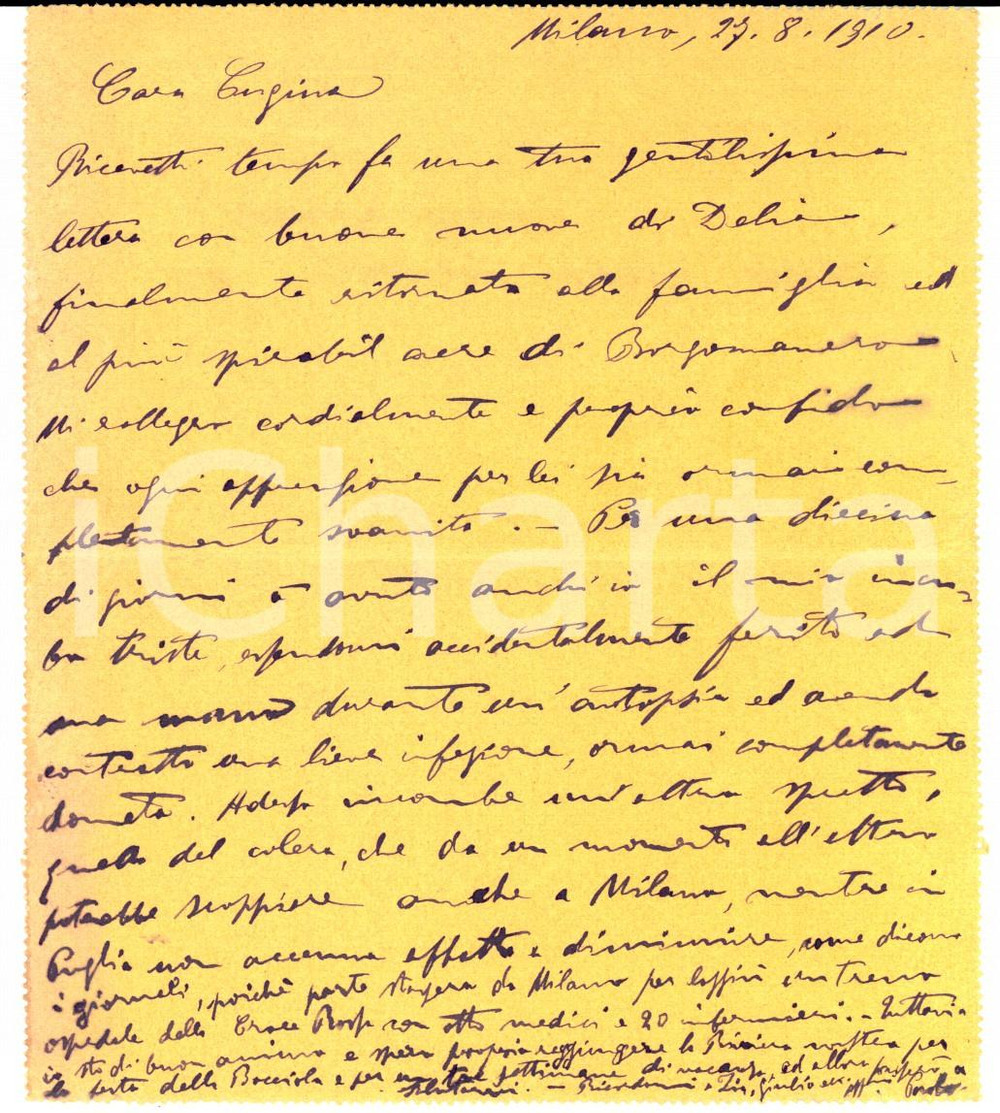 Milano, 27. 8. 1910.
Cara Cugina
Ricevetti tempo fa una tua gentilissima
lettera con buone nuove di Delia,
finalmente ritornata alla famiglia ed
al più spirabil aere di Borgomanero
Mi rallegro cordialmente e proprio confido
che ogni apprensione per lei sia ormai com-
pletamente svanita. - Per una diecina
di giorni ò avuto anch'io il mio incu-
bo triste, essendomi accidentalmente ferito ad
una mano durante un'autopsia ed avendo
contratto una lieve infezione, ormai completamente
domata. Adesso incombe un'altro spettro,
quello del colera, che da un momento all'altro
potrebbe scoppiare anche a Milano, mentre in
Puglia non accenna affatto a diminuire, come dicono
i giornali, poichè parte stasera da Milano per laggiù un treno
ospedale della Croce Rossa con otto medici e 20 infermieri. - Tuttavia
io sto di buon animo e spero proprio raggiungere la Riviera nostra per
la festa della Bocciola e per un tre settimane di vacanza, ed allora passerò a
salutarvi. - Ricordami a Zio, Giulio ecc. aff.mo Paolo
iCharta